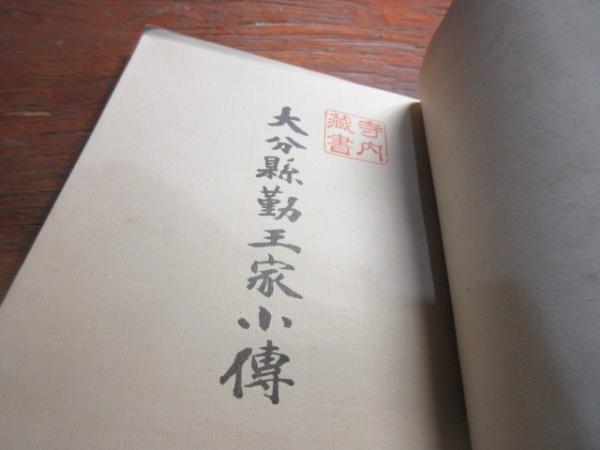 大分縣勤王家小傳
寺内
蔵書